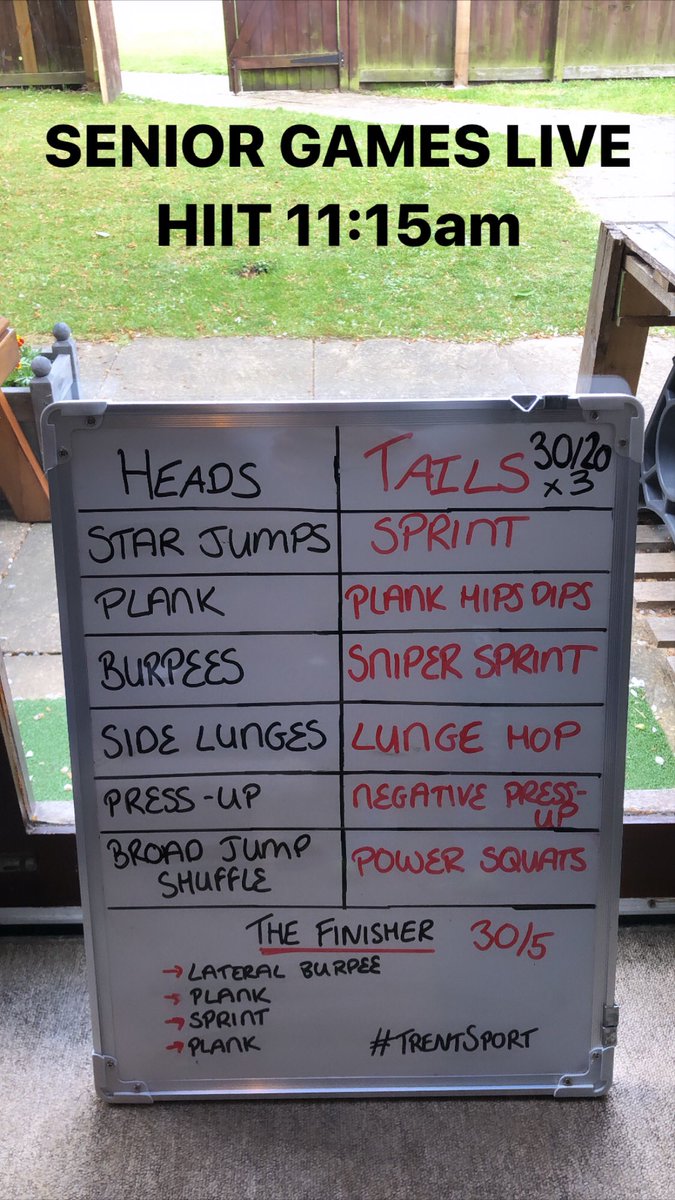 SENIOR GAMES LIVE
HIIT 11:15am
HEADS
TAILS
30/20
x 3
STAR JUMPS
SPRINT
PLANK
PLANK HIPS DIPS
BURPEES
SNIPER SPRINT
SIDE LUNGES
LUNGE HOP
PRESS-UP
NEGATIVE PRESS-
UP
BROAD JUMP
SHUFFLE
POWER SQUATS
THE FINISHER 30/5
→ LATERAL BURPEE
→ PLANK
→ SPRINT
→ PLANK
#TRENTSPORT